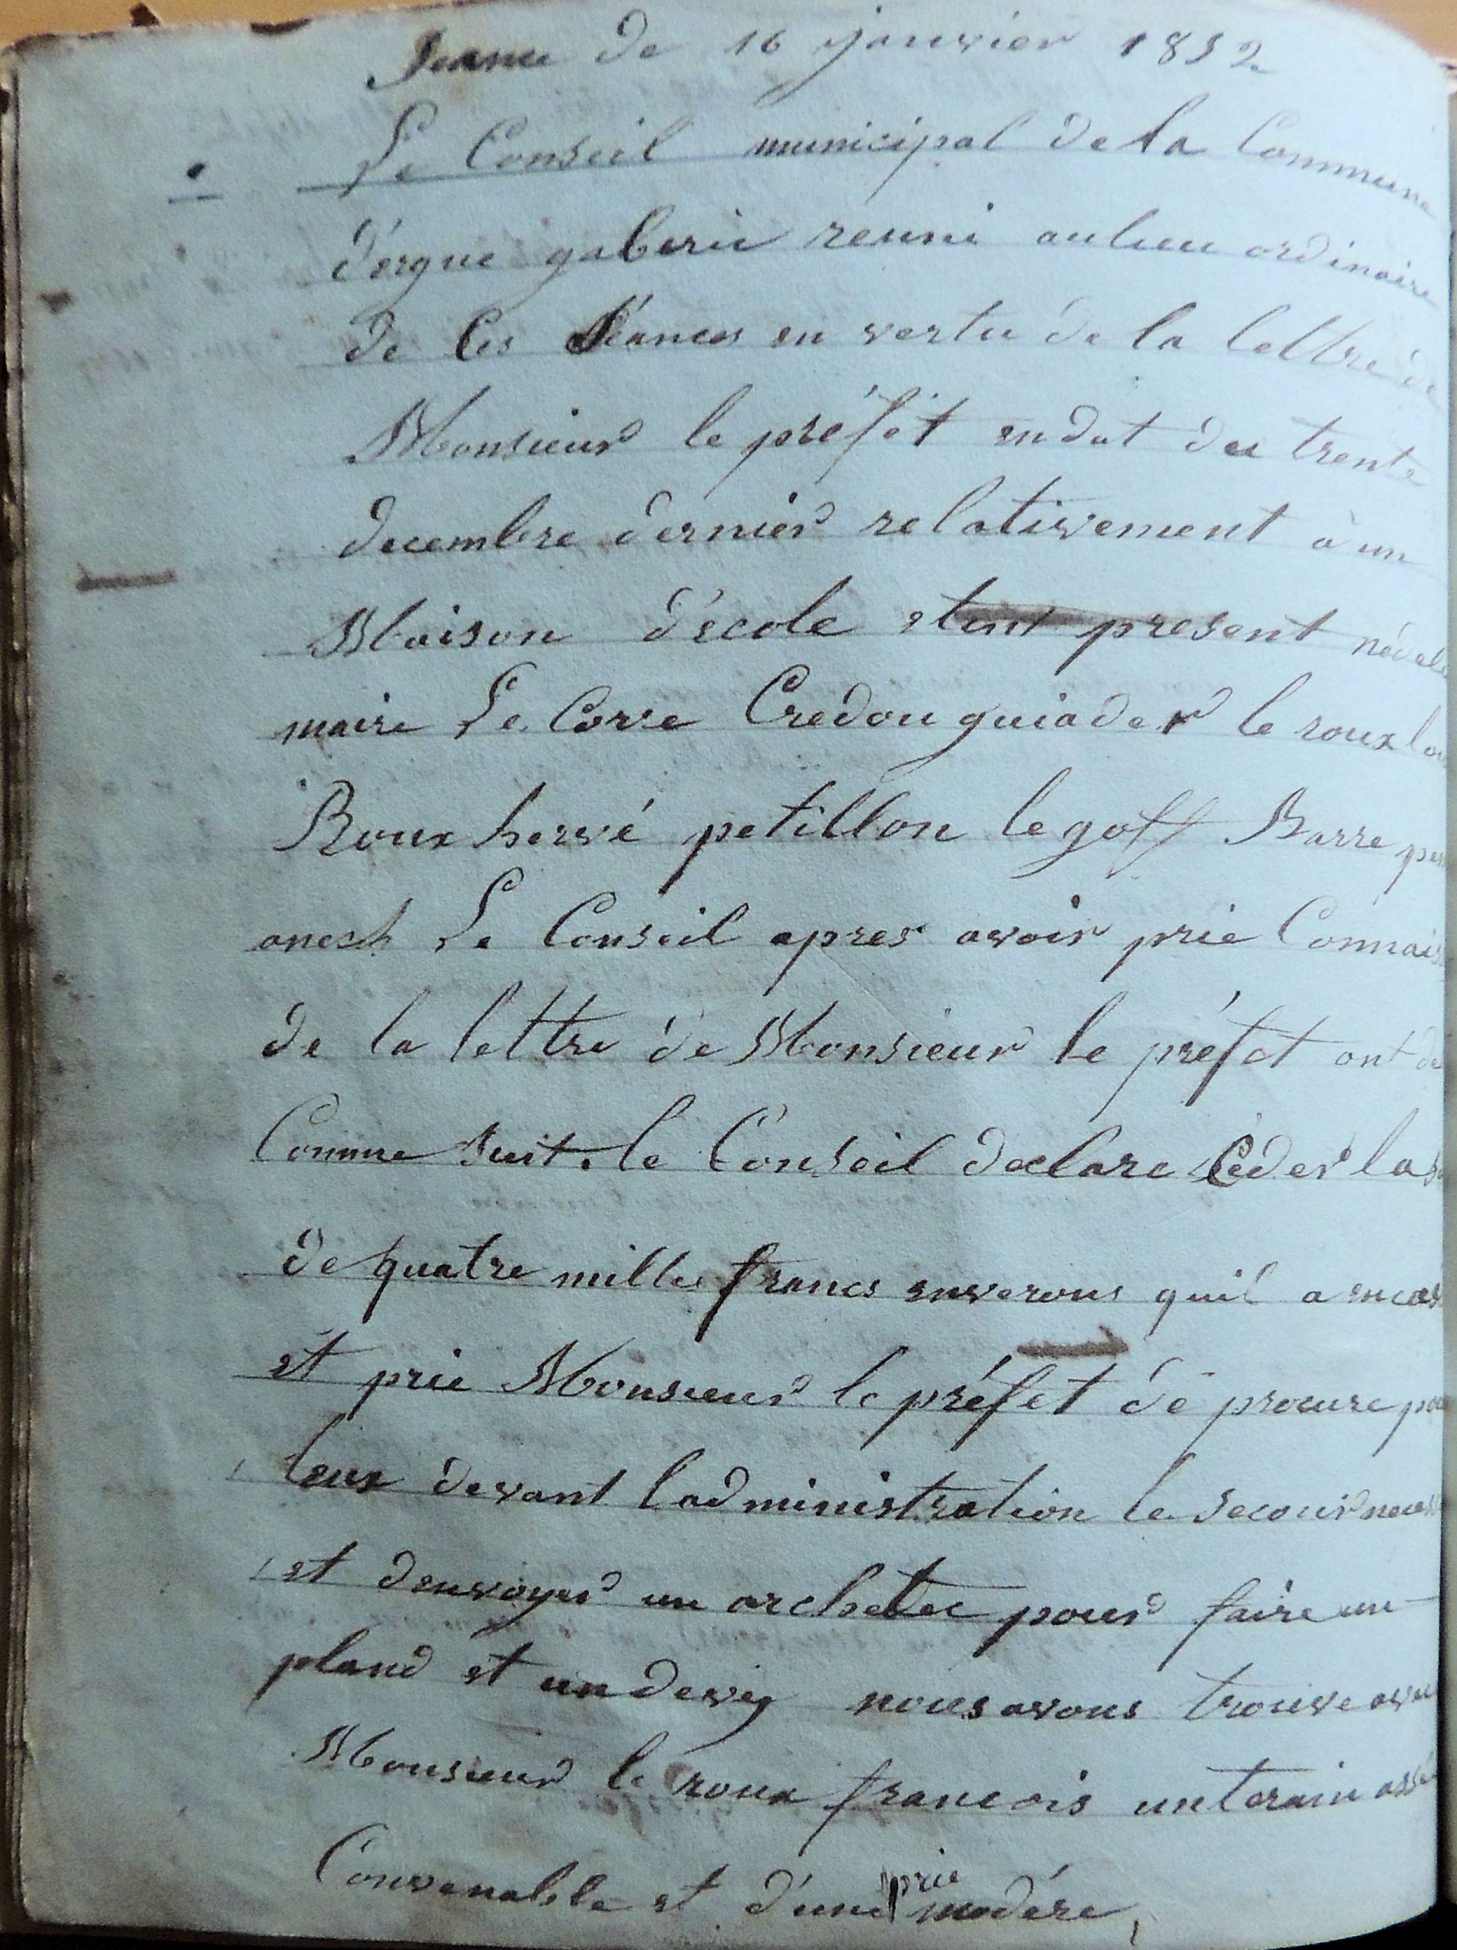 Seance de 16 janvier 1852
Le Conseil municipal de la Commune
d'ergue gaberic reuni aulieu ordinaire
de Ces séances en vertu de la lettre de
Monsieur le préfet endat du trente
decembre dernier relativement à un
Maison d'école etent present nédelec
maire Le Corre Credou guiader le roux
Roux hervé petillon le goff Barre
anech Le Conseil apres avoir prie Connais
de la lettre de Monsieur le préfet ont
Comme Suit. le Conseil declare Céder la
de quatre milles francs enverons quil a encas
et prie Monsieur le préfet de procure pour
leux devant ladministration le secour neces
et denvoyer un archetec pour faire un
pland et un devig nous avons trouve avec
Monsieur le roux francois unterain assé
Convenable et d'une prie modére,